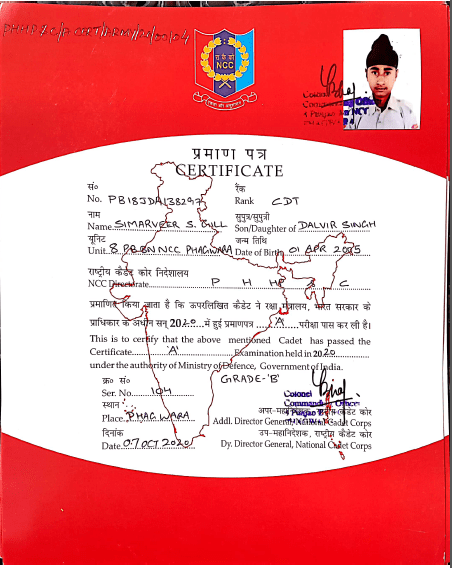 NCC
प्रमाण पत्र
CERTIFICATE
सं० रैंक
No. PB18JDA138297 Rank CDT
नाम सुपुत्र/सुपुत्री
Name SIMARVEER S. GILL Son/Daughter of DALVIR SINGH
यूनिट जन्म तिथि
Unit 8 PB BN NCC PHAGWARA Date of Birth 01 APR 2005
राष्ट्रीय कैडेट कोर निदेशालय
NCC Directorate P H HP & C
प्रमाणित किया जाता है कि ऊपरलिखित कैडेट ने रक्षा मंत्रालय, भारत सरकार के
प्राधिकार के अधीन सन् 2020 में हुई प्रमाणपत्र 'A' परीक्षा पास कर ली है।
This is to certify that the above mentioned Cadet has passed the
Certificate 'A' Examination held in 2020
under the authority of Ministry of Defence, Government of India.
क्र० सं० GRADE-'B'
Ser. No. 104
Colonel
Commanding Officer
स्थान अपर-महानिदेशक, राष्ट्रीय कैडेट कोर
Place PHAGWARA Addl. Director General, National Cadet Corps
दिनांक उप-महानिदेशक, राष्ट्रीय कैडेट कोर
Date 07 OCT 2020 Dy. Director General, National Cadet Corps